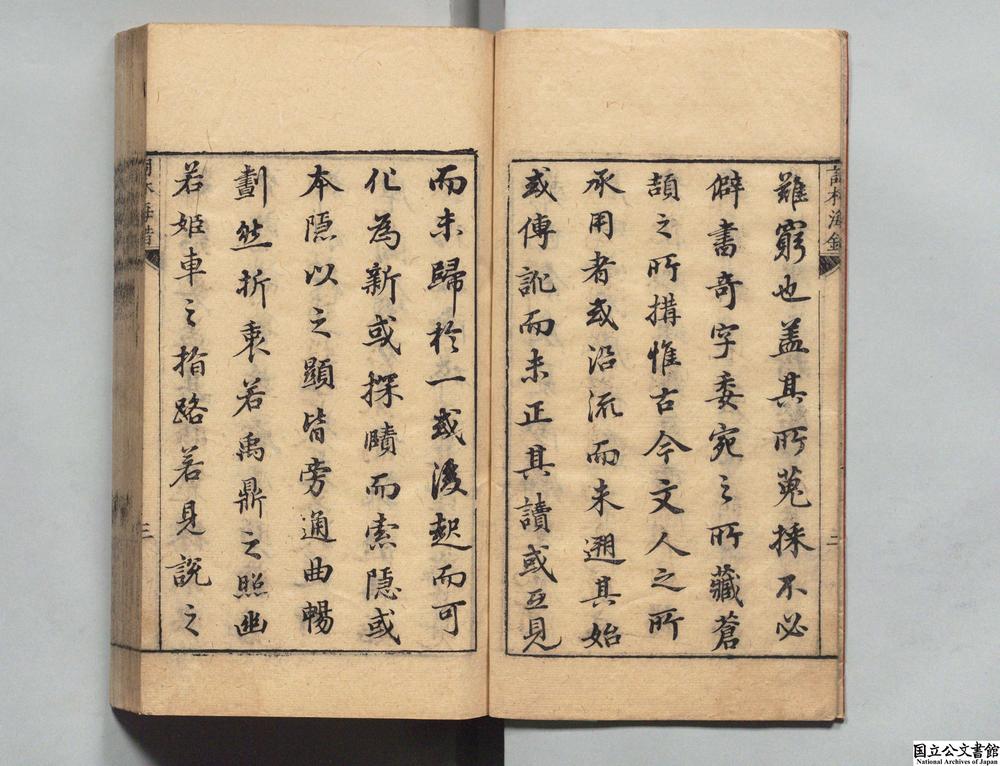 難窮也盖其所蒐採不必
僻書奇字委宛之所藏蒼
頡之所搆惟古今文人之所
承用者或沿流而未遡其始
或傳訛而未正其讀或互見
二
而未歸於一或後起而可
化為新或探賾而索隱或
本隱以之顯皆旁通曲暢
劃然折衷若禹鼎之照幽
若姬車之指路若見説之
三
国立公文書館
National Archives of Japan